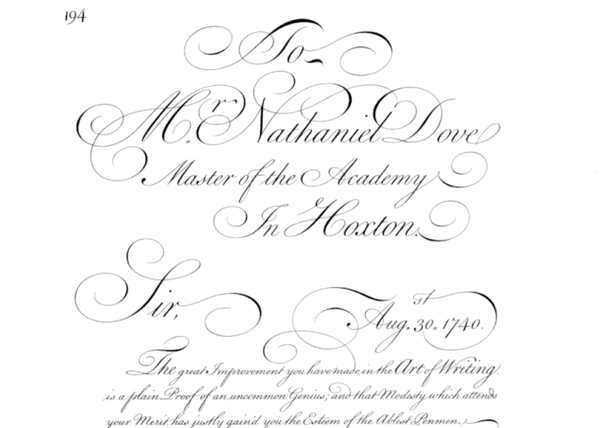 194
To
Mr. Nathaniel Dove
Master of the Academy
In Hoxton.
Sir,
Aug. 30.st 1740.
The great Improvement you have made in the Art of Writing
is a plain Proof of an uncommon Genius; and that Modesty which attends
your Merit, has justly gain'd you the Esteem of the Ablest Penmen.